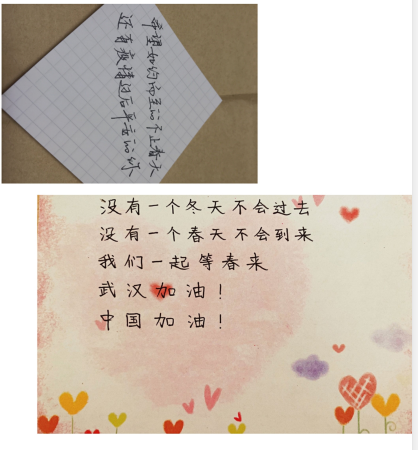 希望如约而至的不止春天
还有疫情过后平安的你
没有一个冬天不会过去
没有一个春天不会到来
我们一起等春来
武汉加油!
中国加油!